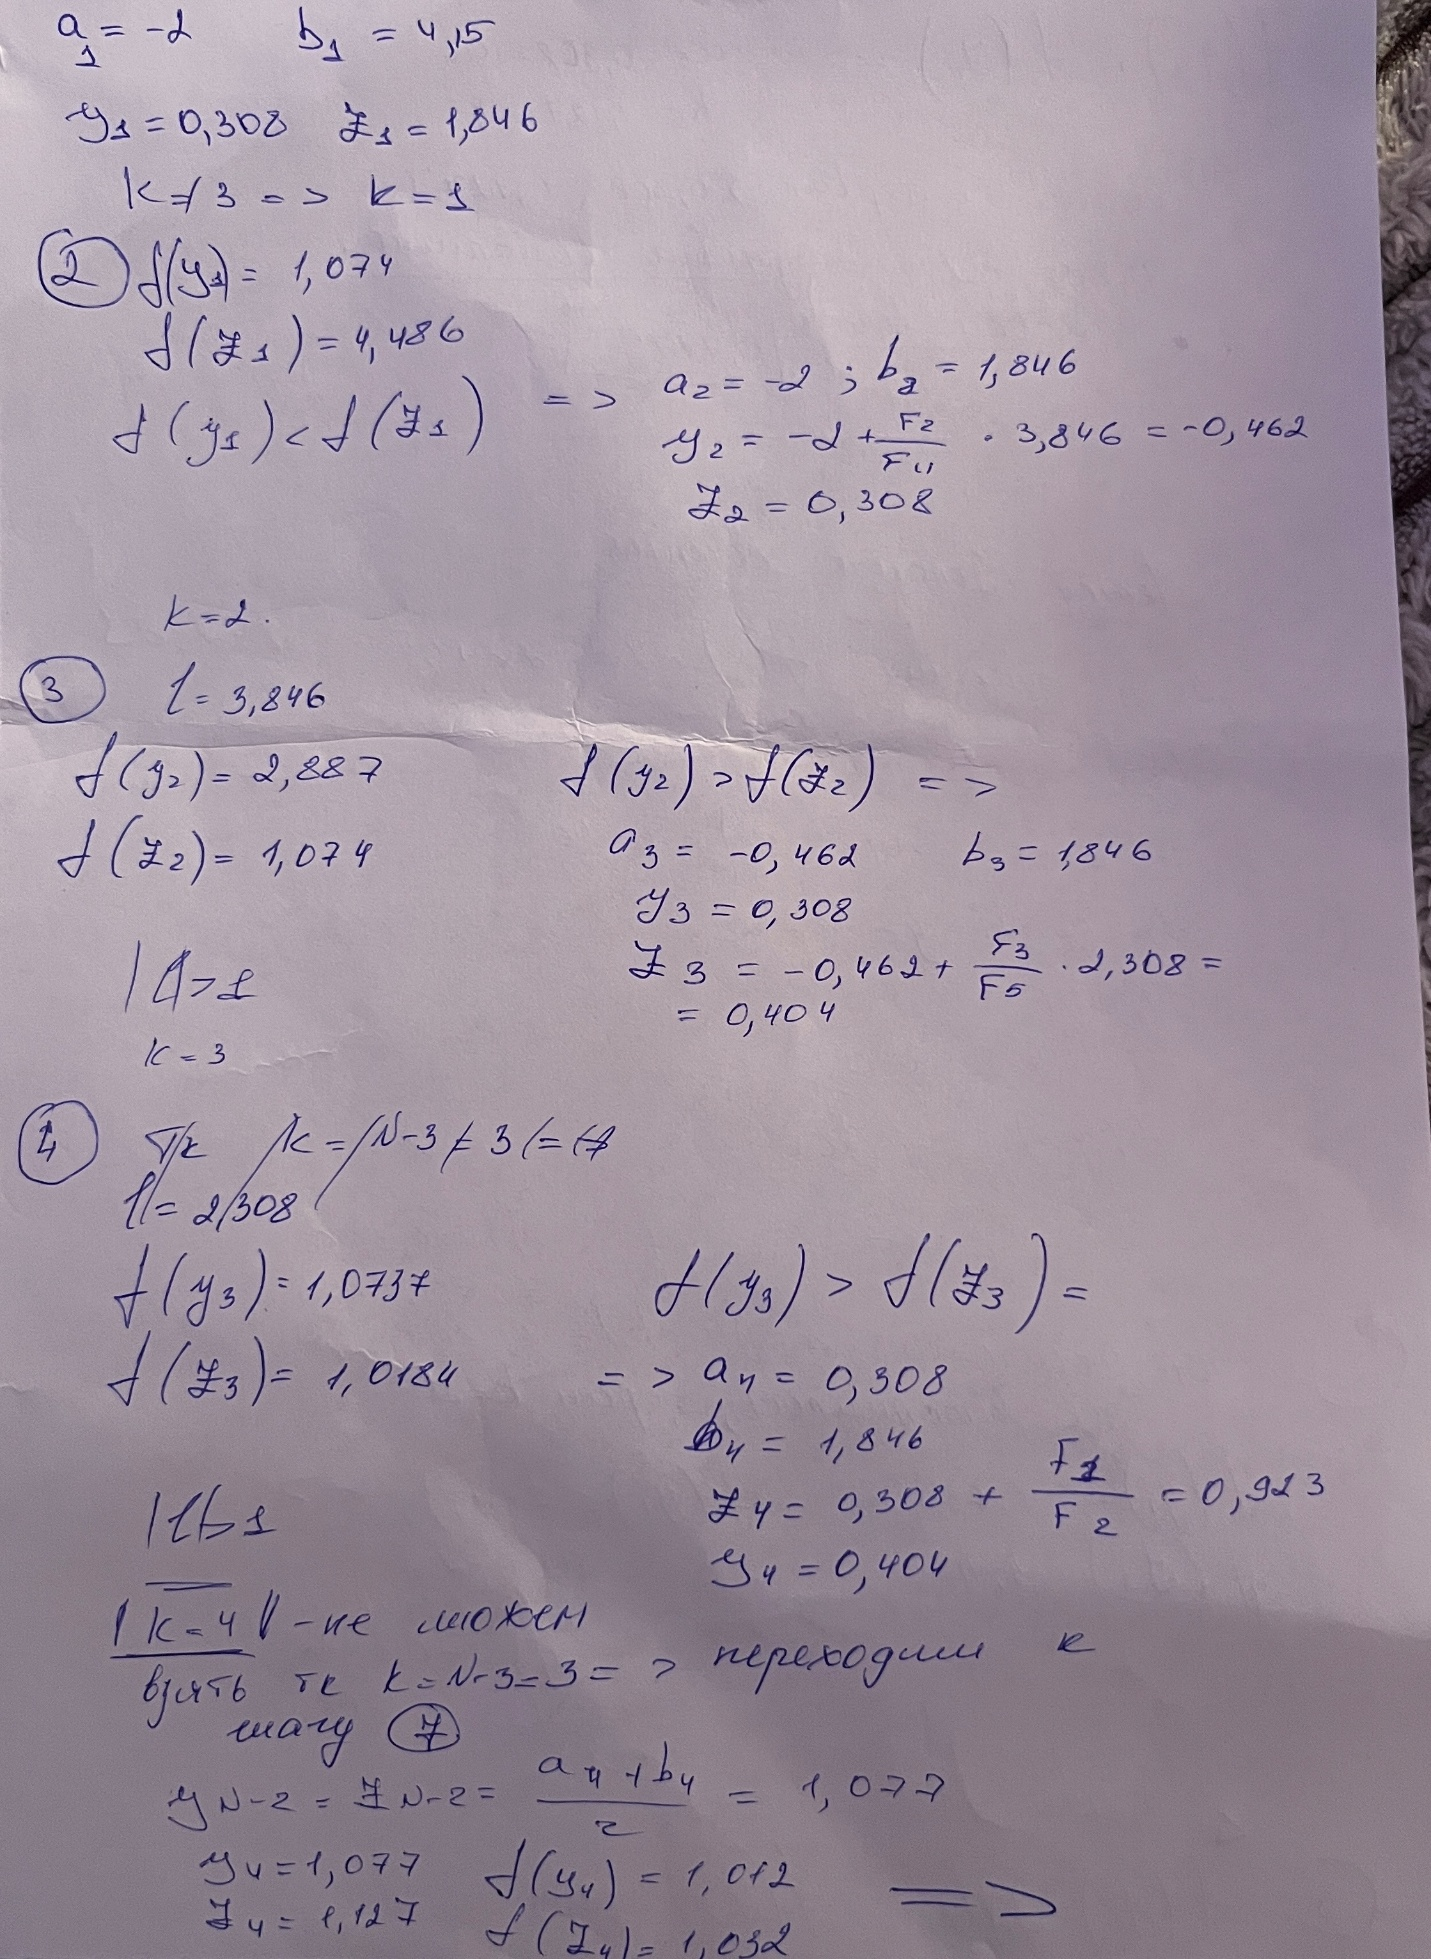 a₁ = -2 b₁ = 4,15
y₁ = 0,308 z₁ = 1,846
k ≠ 3 => k = 1
② f(y₁) = 1,074
f(z₁) = 4,486
f(y₁) < f(z₁) => a₂ = -2 ; b₂ = 1,846
y₂ = -2 + F₂/F₄ · 3,846 = -0,462
z₂ = 0,308
k = 2.
③ l = 3,846
f(y₂) = 2,887 f(y₂) > f(z₂) =>
f(z₂) = 1,074 a₃ = -0,462 b₃ = 1,846
y₃ = 0,308
z₃ = -0,462 + F₃/F₅ · 2,308 =
= 0,404
|l|>1
k = 3
④ тк k = N-3 = 3
l = 2,308
f(y₃) = 1,0737 f(y₃) > f(z₃) =
f(z₃) = 1,0184 => a₄ = 0,308
b₄ = 1,846
z₄ = 0,308 + F₁/F₂ = 0,923
y₄ = 0,404
|l|>1
|k = 4| - не можем
взять тк k = N-3 = 3 => переходим к
шагу ⑦
y N-2 = z N-2 = a₄ + b₄ / 2 = 1,077
y₄ = 1,077 f(y₄) = 1,012 =>
z₄ = 1,127 f(z₄) = 1,032